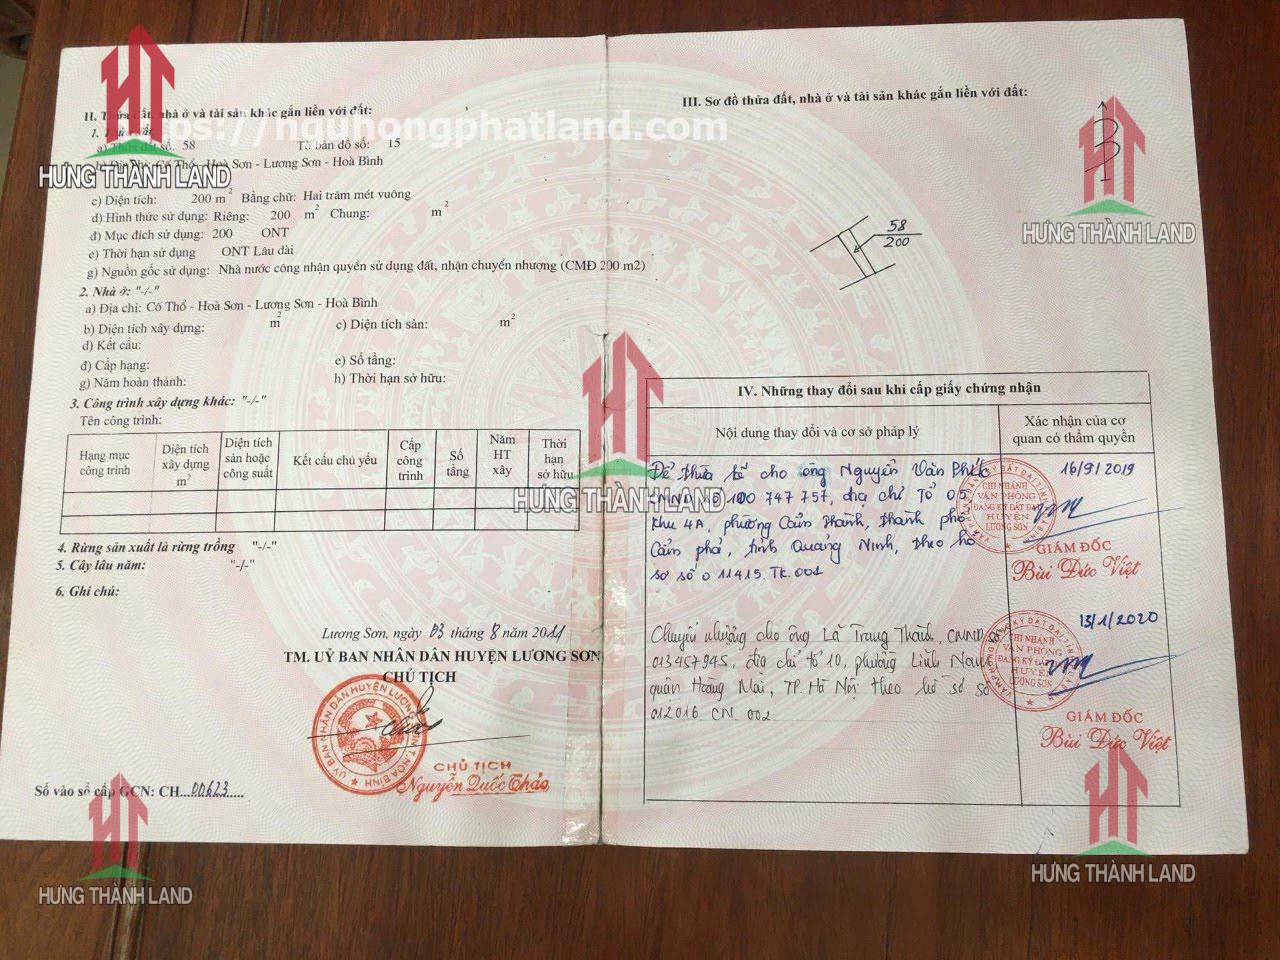 II. Thửa đất, nhà ở và tài sản khác gắn liền với đất:
1. Thửa đất
a) Thửa đất số: 58 Tờ bản đồ số: 15
b) Địa chỉ: Cố Thổ - Hoà Sơn - Lương Sơn - Hoà Bình
c) Diện tích: 200 m2 Bằng chữ: Hai trăm mét vuông
d) Hình thức sử dụng: Riêng: 200 m2 Chung: m2
đ) Mục đích sử dụng: 200 ONT
e) Thời hạn sử dụng ONT Lâu dài
g) Nguồn gốc sử dụng: Nhà nước công nhận quyền sử dụng đất, nhận chuyển nhượng (CMĐ 200 m2)
2. Nhà ở: "-/-"
a) Địa chỉ: Cố Thổ - Hoà Sơn - Lương Sơn - Hoà Bình
b) Diện tích xây dựng: m2 c) Diện tích sàn: m2
d) Kết cấu:
đ) Cấp hạng: e) Số tầng:
g) Năm hoàn thành: h) Thời hạn sở hữu:
3. Công trình xây dựng khác: "-/-"
Tên công trình:
Hạng mục công trình
Diện tích xây dựng m2
Diện tích sàn hoặc công suất
Kết cấu chủ yếu
Cấp công trình
Số tầng
Năm HT xây
Thời hạn sở hữu
4. Rừng sản xuất là rừng trồng "-/-"
5. Cây lâu năm: "-/-"
6. Ghi chú:
Lương Sơn, ngày 03 tháng 8 năm 2011
TM. UỶ BAN NHÂN DÂN HUYỆN LƯƠNG SƠN
CHỦ TỊCH
CHỦ TỊCH
Nguyễn Quốc Thảo
Số vào sổ cấp GCN: CH...00623....
III. Sơ đồ thửa đất, nhà ở và tài sản khác gắn liền với đất:
58
200
IV. Những thay đổi sau khi cấp giấy chứng nhận
Nội dung thay đổi và cơ sở pháp lý
Xác nhận của cơ
quan có thẩm quyền
Để thừa kế cho ông Nguyễn Văn
CMND số 100 747 757, địa chỉ Tổ 05
khu 4A, phường Cẩm Thành, thành phố
Cẩm phả, tỉnh Quảng Ninh, theo hồ
sơ số 011415.TK.001
16/9/2019
CHI NHÁNH
VĂN PHÒNG
ĐĂNG KÝ ĐẤT ĐAI
HUYỆN
LƯƠNG SƠN
GIÁM ĐỐC
Bùi Đức Việt
Chuyển nhượng cho ông Lã Trung Thành, CMND số
013457945, địa chỉ tổ 10, phường Lĩnh Nam
quận Hoàng Mai, TP Hà Nội theo hồ sơ số
012016.CN.002
13/1/2020
CHI NHÁNH
VĂN PHÒNG
ĐĂNG KÝ ĐẤT ĐAI
HUYỆN
LƯƠNG SƠN
GIÁM ĐỐC
Bùi Đức Việt
https://nguhongphatland.com
HƯNG THÀNH LAND
HƯNG THÀNH LAND
HƯNG THÀNH LAND
HƯNG THÀNH LAND
HƯNG THÀNH LAND